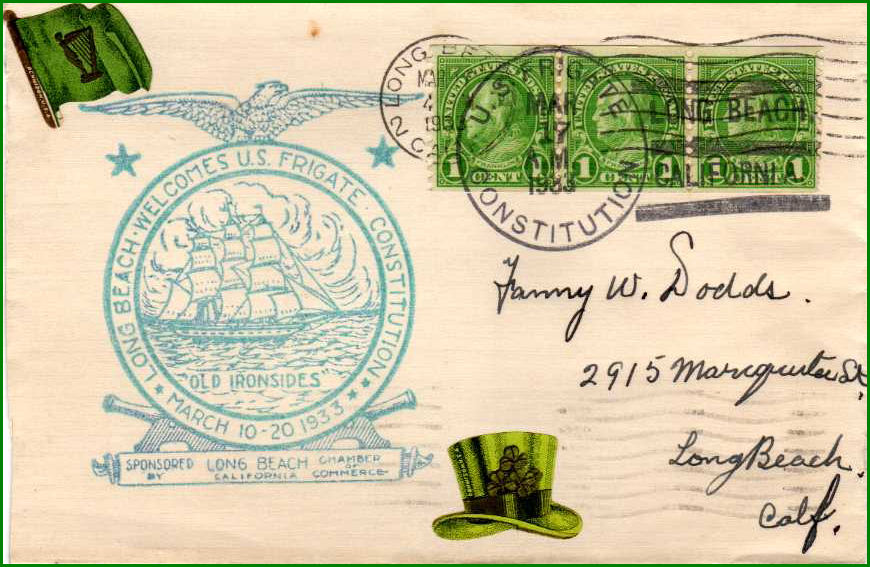 LONG BEACH · WELCOMES U.S. FRIGATE · CONSTITUTION
"OLD IRONSIDES"
MARCH 10-20 1933
SPONSORED BY LONG BEACH CALIFORNIA CHAMBER OF COMMERCE
2 LONG BE
MAR
4
193
U.S. FRIGATE
MAR
17
A.M.
1933
CONSTITUTION
LONG BEACH
CALIFORNIA
UNITED STATES
1 CENT 1
UNITED STATES
1 CENT 1
1 CENT 1
Fanny W. Dodds.
2915 St.
Long Beach.
Calf.